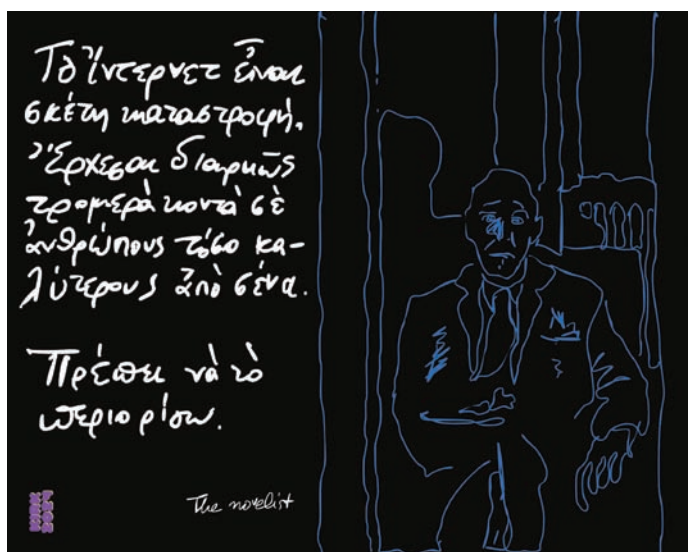 Τὸ ἴντερνετ εἶναι
σκέτη καταστροφή.
Ἔρχεσαι διαρκῶς
τρομερὰ κοντὰ σὲ
ἀνθρώπους τόσο κα-
λύτερους ἀπὸ σένα.
Πρέπει νὰ τὸ
περιορίσω.
The novelist